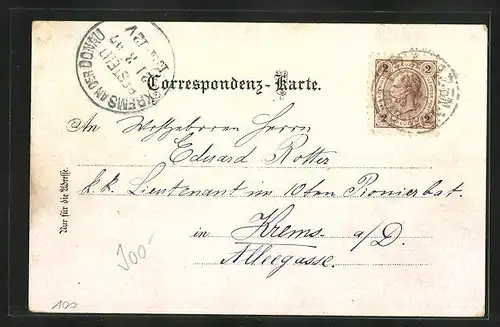 KREMS AN DER DONAU
BESTELLT
Correspondenz-Karte.
2 2
2 2
An Wohlgeboren Herrn
Eduard Rotter
k.k. Lieutenant im 10ten Pionierbat.
in Krems a/D.
Alleegasse.
Nur für die Adresse.
100